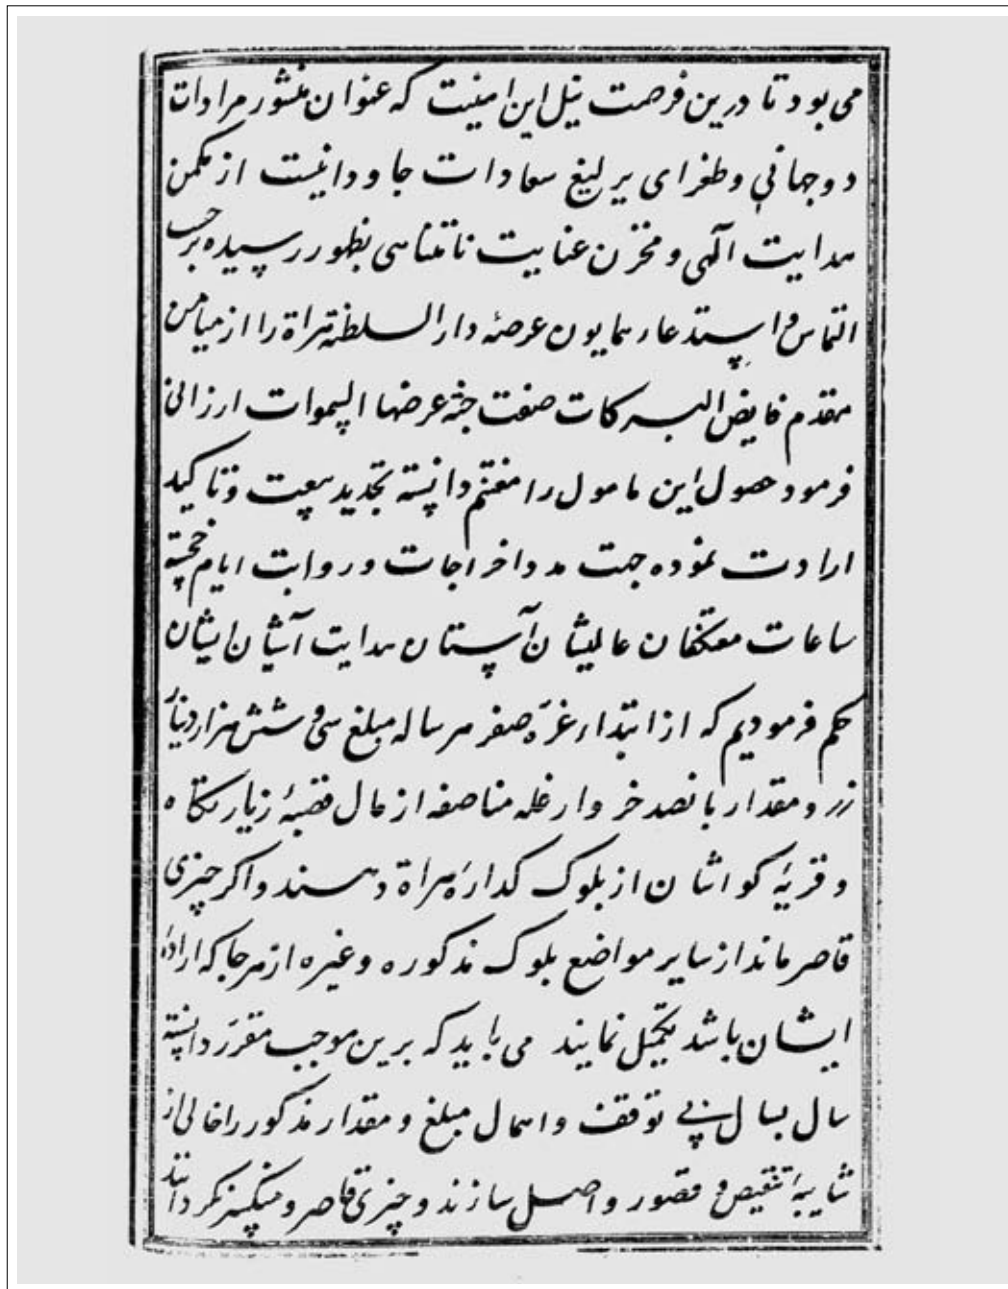 می بود تا درین فرصت نیل این امنیت که عنوان منشور مرادات
دوجهانی و طغرای یرلیغ سعادات جاودانیست از مکمن
هدایت آلهی و مخزن عنایت نامتناهی بظهور رسیده برحسب
التماس و استدعاء همایون عرصهٔ دار السلطنه هراة را از میامن
مقدم فایض البرکات صفت جنة عرضها السموات ارزانی
فرمود حصول این مامول را مغتنم دانسته بتجدید بیعت و تاکید
ارادت نموده جهت مدد اخراجات و رواتب ایام خجسته
ساعات معتکفان عالیشان آستان هدایت آشیان ایشان
حکم فرمودیم که از ابتداء غرّه صفر هر ساله مبلغ سی و شش هزار دینار
زر و مقدار پانصد خروار غله مناصفه از مال قصبهٔ زیارتگاه
و قریهٔ کواشان از بلوک کدارهٔ هراة دهند و اکر چیزی
قاصر ماند از سایر مواضع بلوک مذکوره و غیره از هر جا که ارادهٔ
ایشان باشد تکمیل نمایند می باید که برین موجب مقرّر دانسته
سال بسال بی توقف و اهمال مبلغ و مقدار مذکور را خالی از
شایبهٔ تنقیص و قصور واصل سازند و چیزی قاصر و منکسر نکردانند